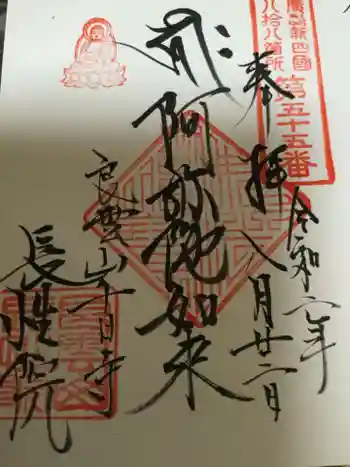 廣島新四國
八拾八箇所
第五十五番
奉拝 八月廿二日
令和二年
阿弥陀如来
良雲山十日寺
長性院